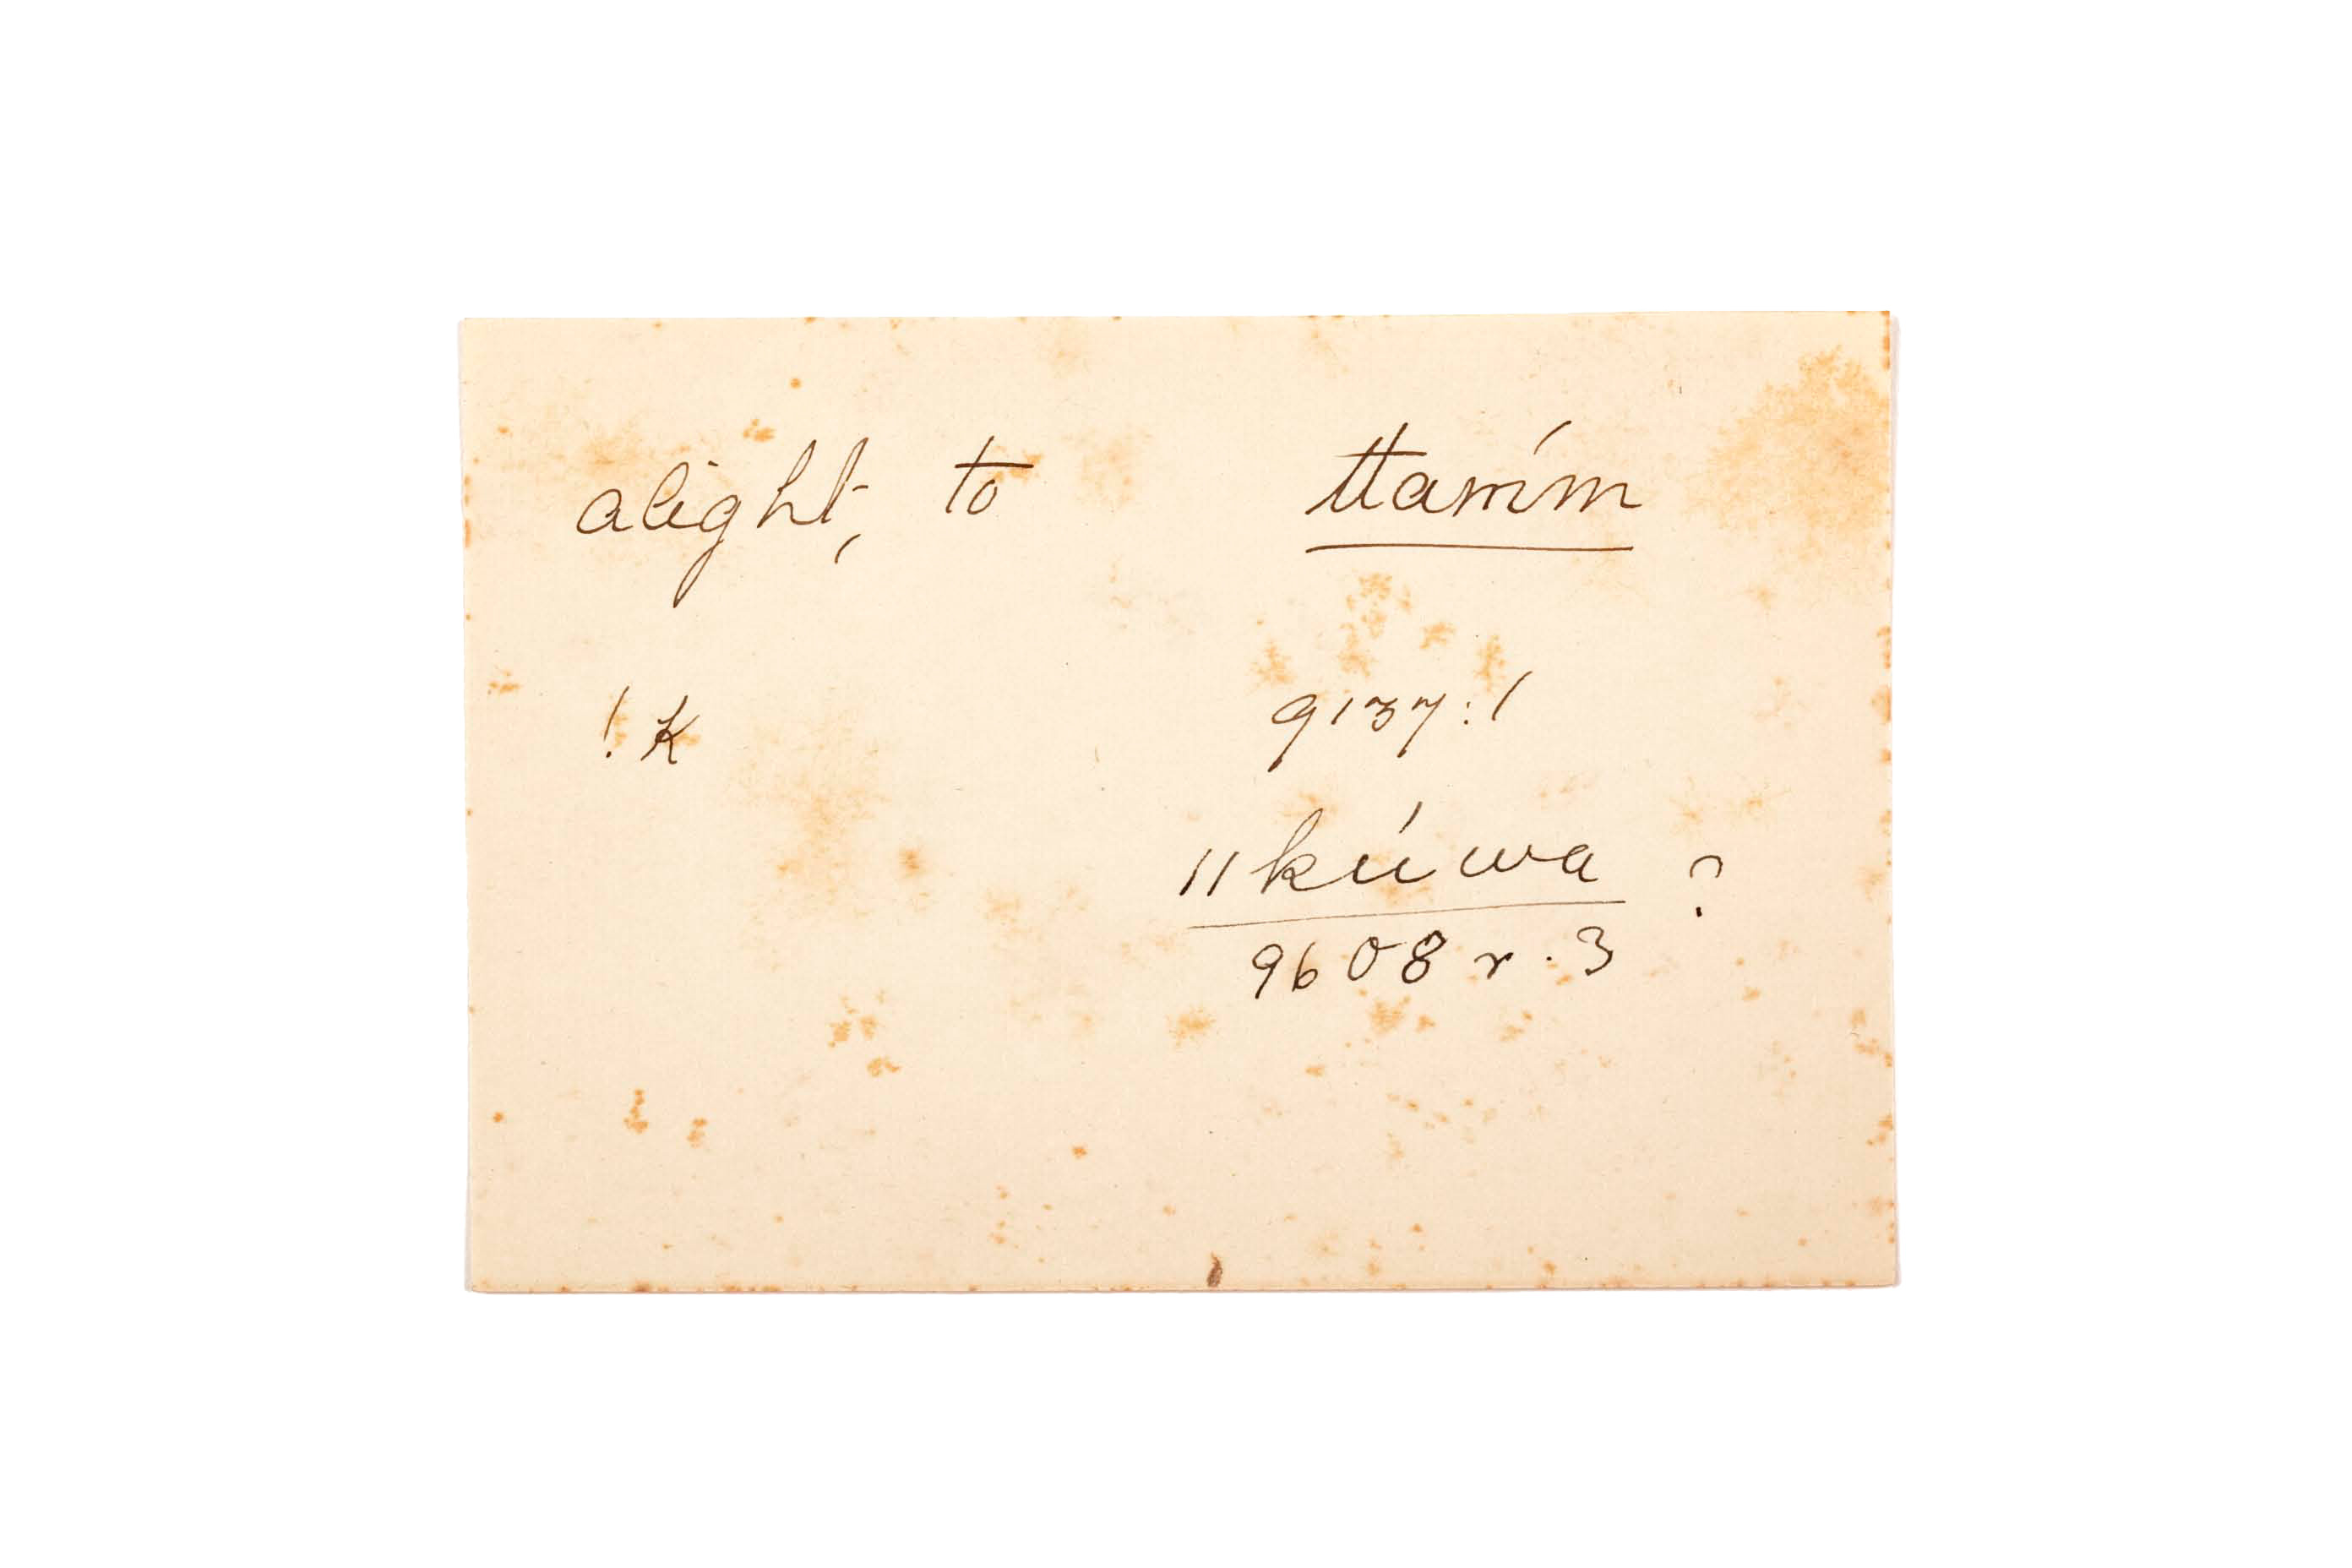 alight, to ttamḿ
! K 9137:1
ǁkúwa ?
9608 r. 3